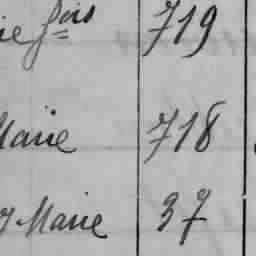 ie fois 719
Marie 718
y Marie 37